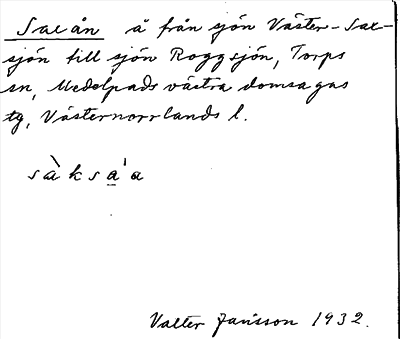 Saxån å från sjön Väster-Sax-
sjön till sjön Roggsjön, Torps
sn, Medelpads västra domsagas
tg, Västernorrlands l.
sàksa̲ˈa
Valter Jansson 1932.